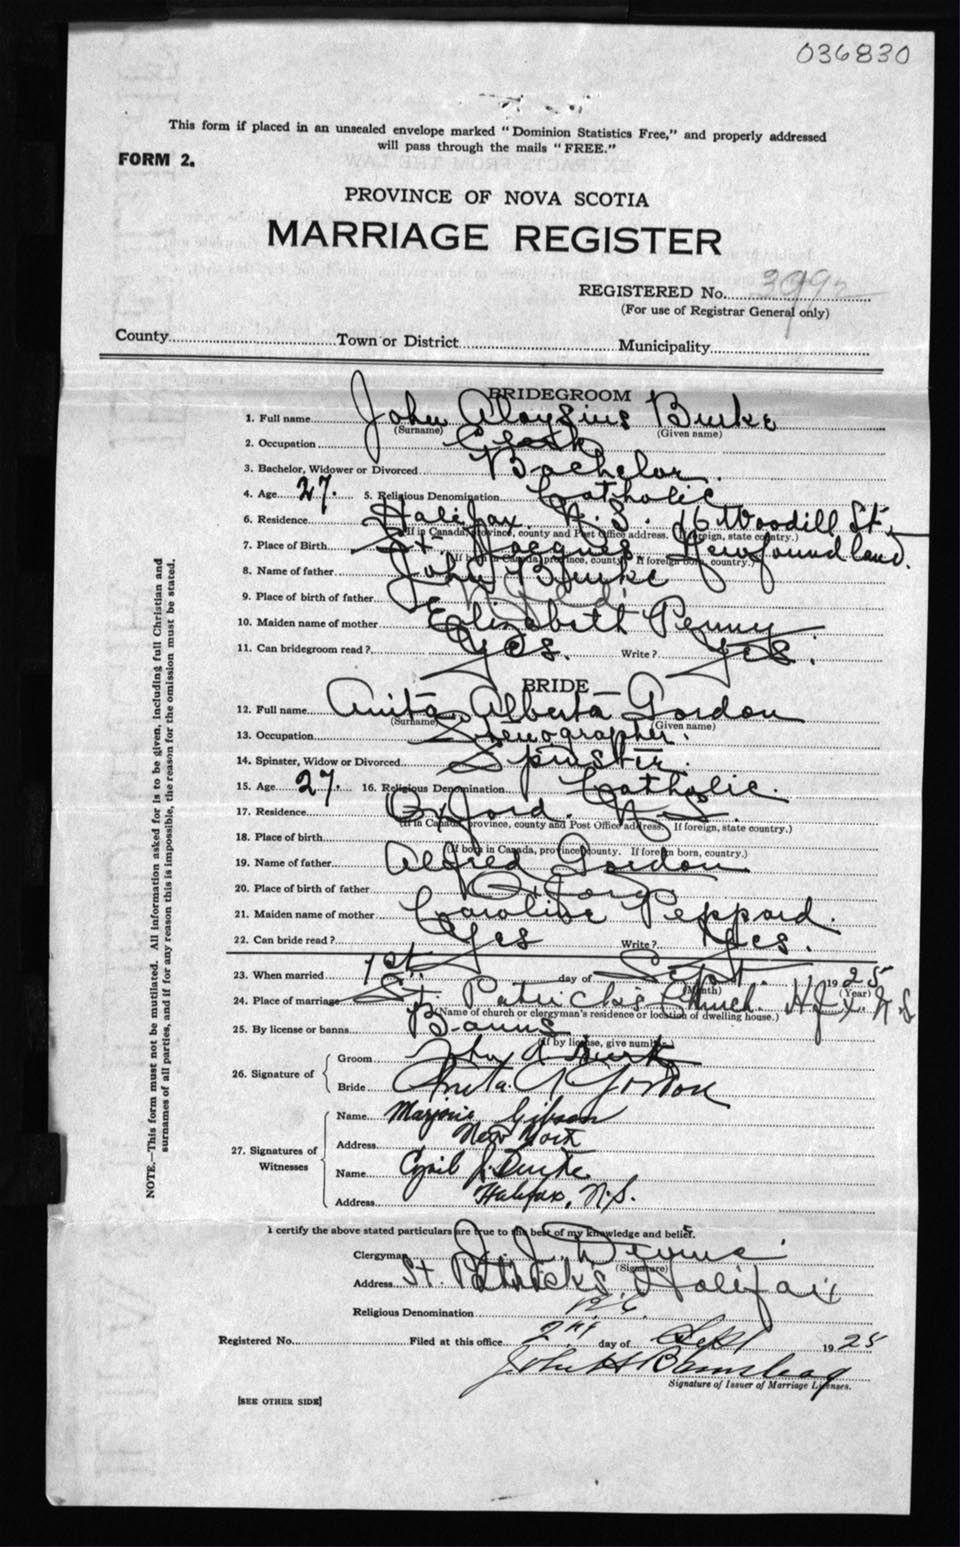 036830
This form if placed in an unsealed envelope marked "Dominion Statistics Free," and properly addressed
will pass through the mails "FREE."
FORM 2.
PROVINCE OF NOVA SCOTIA
MARRIAGE REGISTER
REGISTERED No. 3992
(For use of Registrar General only)
County Town or District Municipality
BRIDEGROOM
1. Full name John Aloysius Burke
(Surname) (Given name)
2. Occupation Clerk
3. Bachelor, Widower or Divorced Bachelor
4. Age 27. 5. Religious Denomination Catholic
6. Residence Halifax. N.S. 16 Woodill St.
(If in Canada, province, county and Post Office address. If foreign, state country.)
7. Place of Birth St. Jacques Newfoundland.
(If born in Canada, province, county. If foreign born, country.)
8. Name of father John Burke
9. Place of birth of father
10. Maiden name of mother Elizabeth Penny
11. Can bridegroom read? Yes. Write? Yes.
BRIDE
12. Full name Anita Alberta Gordon
(Surname) (Given name)
13. Occupation Stenographer.
14. Spinster, Widow or Divorced Spinster.
15. Age 27. 16. Religious Denomination Catholic.
17. Residence Oxford. N.S.
(If in Canada, province, county and Post Office address. If foreign, state country.)
18. Place of birth
(If born in Canada, province, county. If foreign born, country.)
19. Name of father Alfred Gordon
20. Place of birth of father
21. Maiden name of mother Caroline Peppard.
22. Can bride read? Yes Write? Yes.
23. When married 1st. day of Sept. 1925
(Month) (Year)
24. Place of marriage St. Patrick's Church. Hfx. N S
(Name of church or clergyman's residence or location of dwelling house.)
25. By license or banns Banns
(If by license, give number)
26. Signature of Groom John A Burke
Bride Anita. A. Gordon
27. Signatures of Witnesses
Name Marjorie Gibson
Address New York
Name Cyril J. Burke
Address Halifax, N.S.
I certify the above stated particulars are true to the best of my knowledge and belief.
Clergyman J. J. Devine
(Signature)
Address St. Patrick's Halifax
Religious Denomination R.C.
Registered No. Filed at this office 2nd day of Sept 1925
John H Barnstead
Signature of Issuer of Marriage Licenses.
[SEE OTHER SIDE]
NOTE.—This form must not be mutilated. All information asked for is to be given, including full Christian and
surnames of all parties, and if for any reason this is impossible, the reason for the omission must be stated.